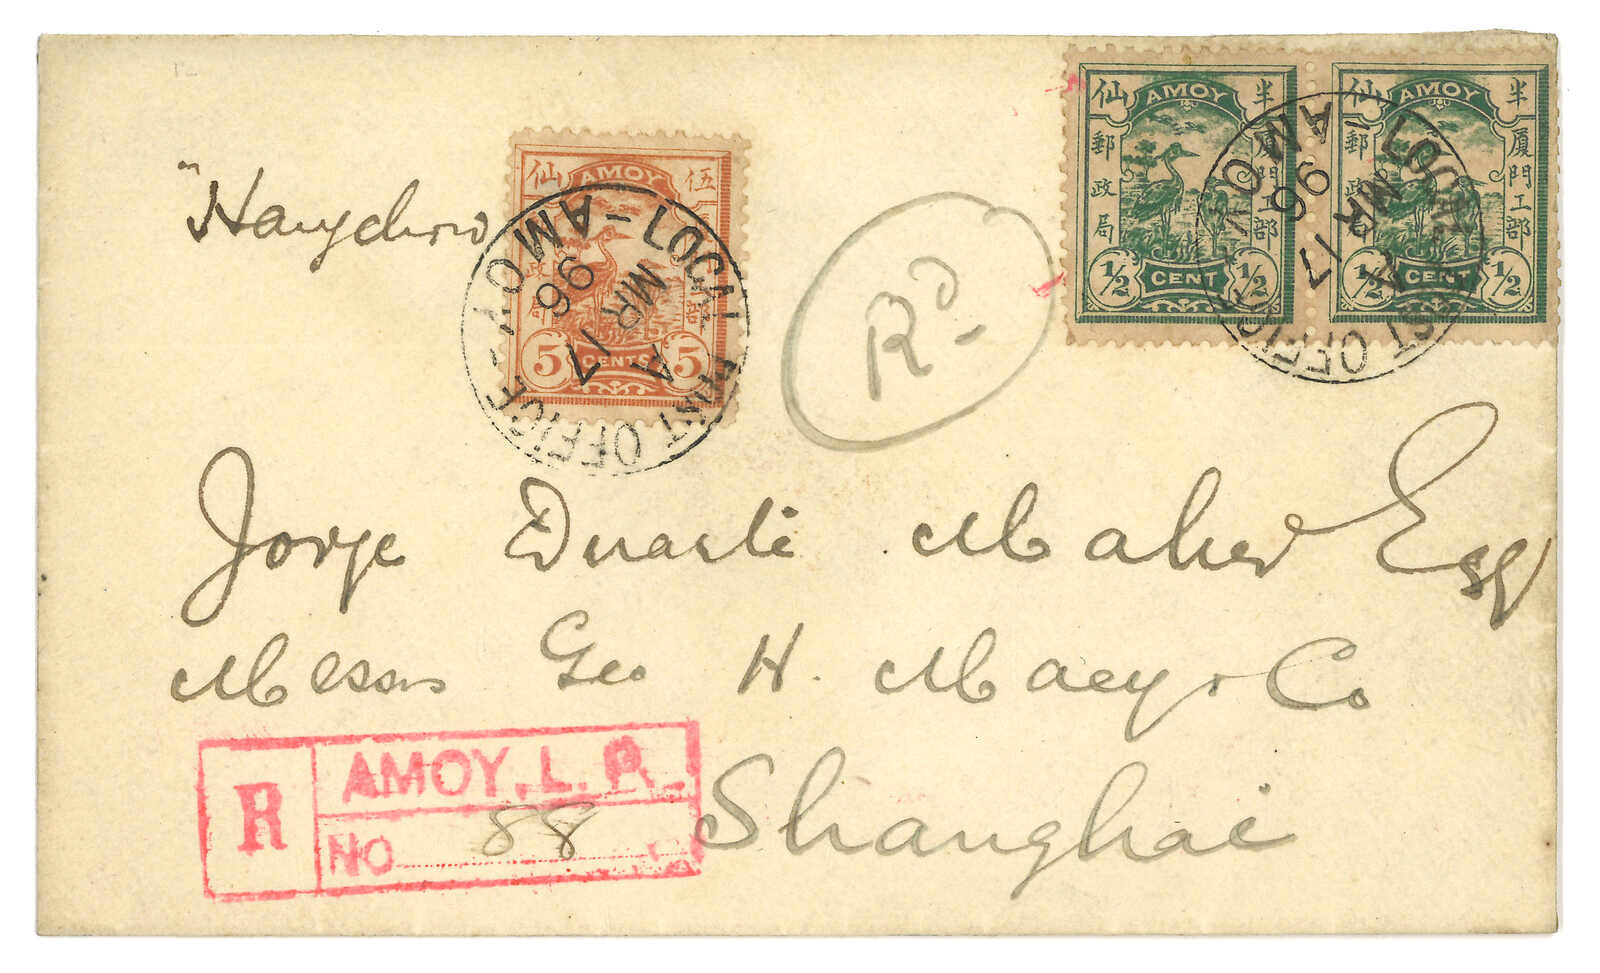 "Hangchow
仙 AMOY 伍
政 部
局
5 CENTS 5
LOCAL POST OFFICE - AMOY -
A
MR 17
96
Rd
仙 AMOY 半
郵政局 厦門工部
1/2 CENT 1/2
仙 AMOY 半
郵政局 厦門工部
1/2 CENT 1/2
LOCAL POST OFFICE - AMOY -
A
MR 17
96
Jorge Duarte Maher Esq
Messrs Geo H. Macy & Co
Shanghai
R
AMOY. L. P.
No 88